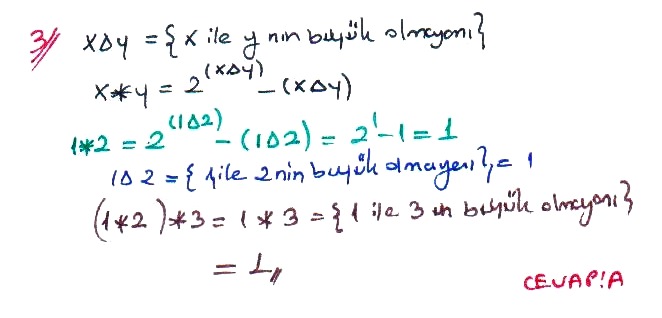 3// x∆y = {x ile y nin büyük olmayanı}
x*y = 2^(x∆y) - (x∆y)
1*2 = 2^(1∆2) - (1∆2) = 2^1 - 1 = 1
1∆2 = {1 ile 2 nin büyük olmayanı} = 1
(1*2)*3 = 1*3 = {1 ile 3 ün büyük olmayanı}
= 1,,
CEVAP: A